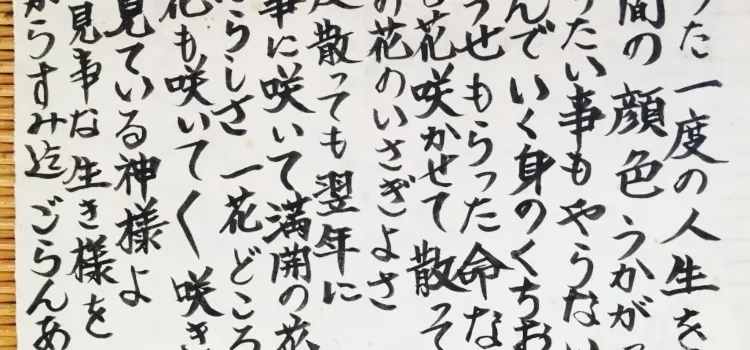 った一度の人生を
間の顔色うかがっ
りたい事もやらない
んでいく身のくちお
っせもらった命な
花咲かせて散って
の花のいさぎよさ
度散っても翌年に
事に咲いて満開の花
らしさ一花どころ
花も咲いてく咲き
見ている神様よ
見事な生き様を
からすみ迄ごらんあ